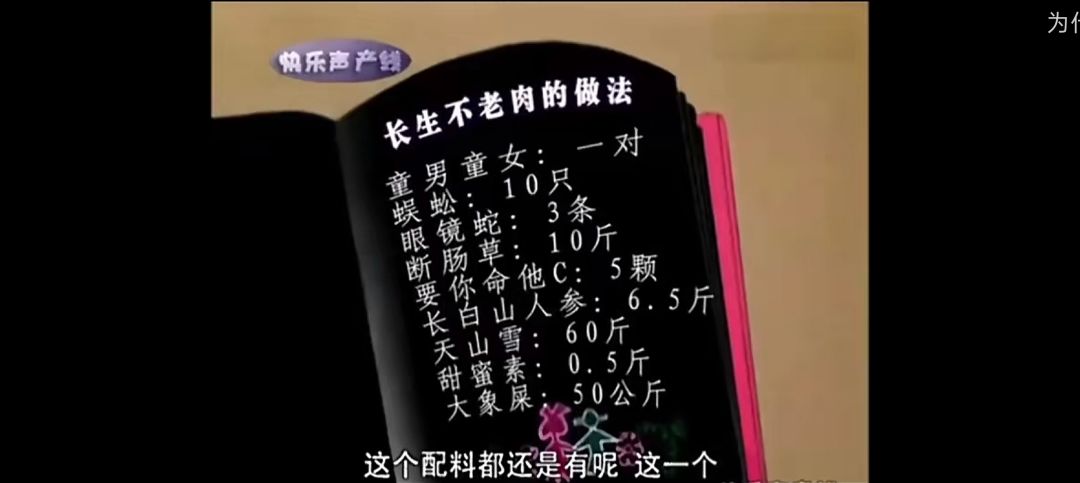 为什
快乐声产线
长生不老肉的做法
童男童女：一对
蜈蚣：10只
眼镜蛇：3条
断肠草：10斤
要你命他C：5颗
长白山人参：6.5斤
天山雪：60斤
甜蜜素：0.5斤
大象屎：50公斤
这个配料都还是有呢 这一个